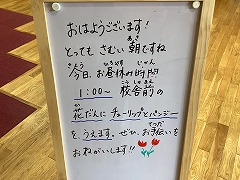 おはようございます!
とっても さむい 朝ですね
今日、お昼休み時間
1:00〜 校舎前の
花だんに チューリップとパンジー
を うえます。ぜひ、お手伝いを
おねがいします!!